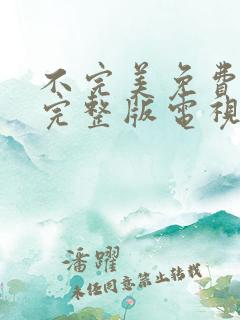 不完美免費
完整版電視
潘躍
未经同意禁止转载